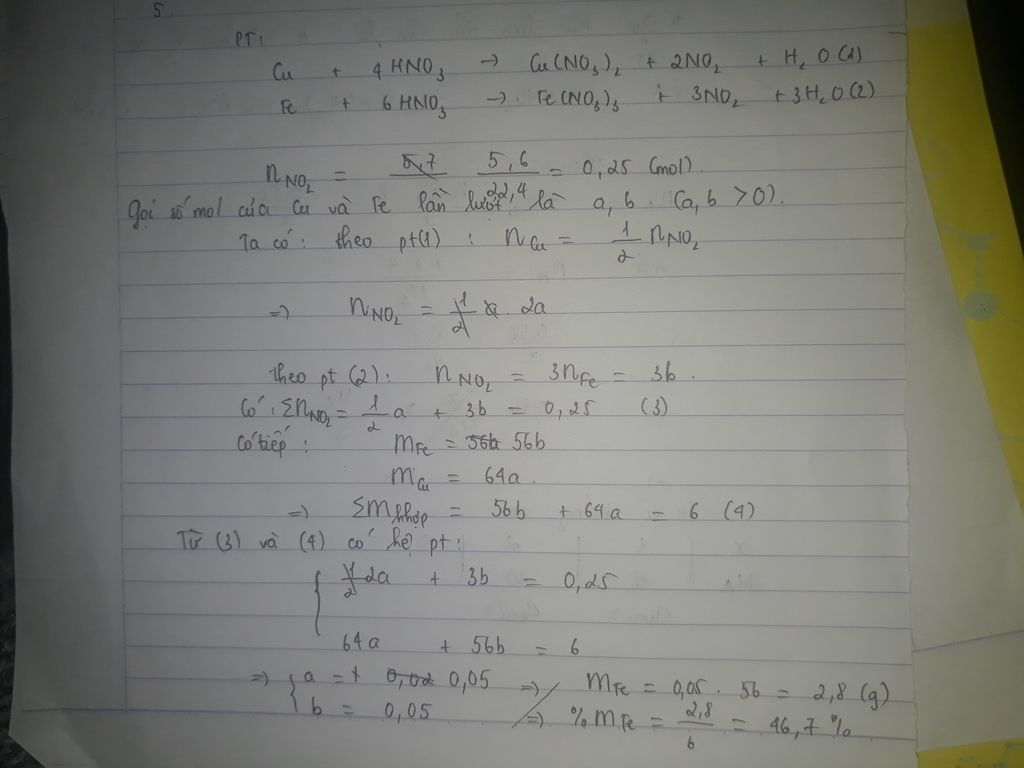 5.
PT:
Cu + 4HNO₃ → Cu(NO₃)₂ + 2NO₂ + H₂O (1)
Fe + 6HNO₃ → Fe(NO₃)₃ + 3NO₂ + 3H₂O (2)
nNO₂ = 5,7 5,6/22,4 = 0,25 (mol).
Gọi số mol của Cu và Fe lần lượt là a, b. (a, b > 0).
Ta có: theo pt(1) : nCu = 1/2 nNO₂
=> nNO₂ = 1/2 a. 2a
theo pt (2): nNO₂ = 3nFe = 3b.
Có: ΣnNO₂ = 1/2 a + 3b = 0,25 (3)
Có tiếp: mFe = 56a 56b
mCu = 64a.
=> Σm hhợp = 56b + 64a = 6 (4)
Từ (3) và (4) có hệ pt:
{ 1/2 2a + 3b = 0,25
64a + 56b = 6
=> { a = 0,02 0,05 => mFe = 0,05 . 56 = 2,8 (g)
b = 0,05 => % mFe = 2,8/6 = 46,7 %